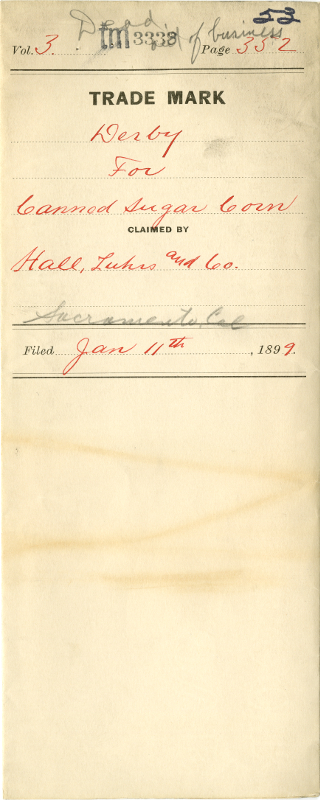 53
Dead out of business
Vol. 3. tm 3338 Page 332
TRADE MARK
Derby
For
Canned Sugar Corn
CLAIMED BY
Hall, Luhrs and Co.
Sacramento, Cal
Filed Jan 11th, 1899.